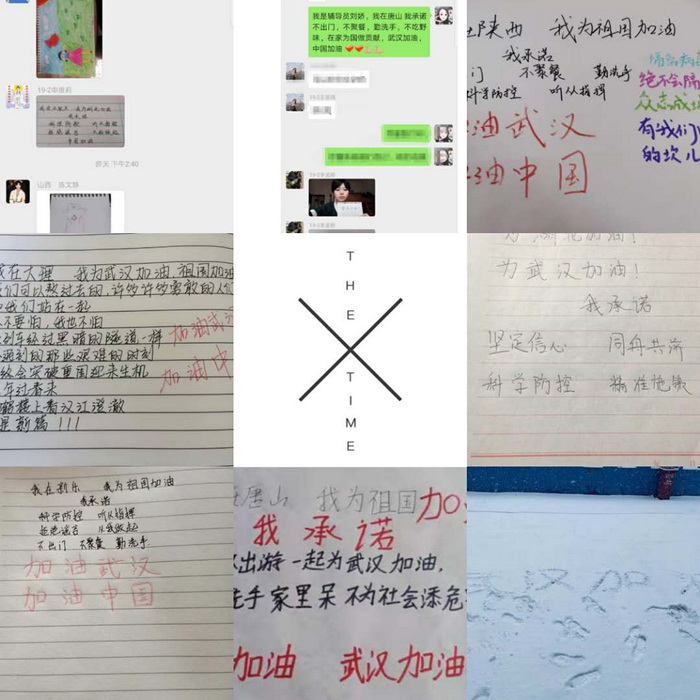 19-2申丽莉
昨天 下午2:40
山西
我是辅导员刘娇，我在唐山 我承诺
不出门，不聚餐，勤洗手，不吃野
味，在家为国做贡献，武汉加油，
中国加油
陕西 我为祖国加油
我承诺
门 不聚餐 勤洗手
科学防控 听从指挥
加油武汉
加油中国
绝不会隔
众志成城
有我们
的坎儿
我在大理 我为武汉加油 祖国加油
我们可以熬过去的,许许多多勇敢的人们
和我们站在一起
不要怕,我也不怕
列车经过黑暗的隧道一样
遇到的那些艰难的时刻
终会突破重围迎来生机
年过春来
楼上看汉江澄澈
是新篇!!!
加油武汉
加油中
THE TIME
为武汉加油!
我承诺
坚定信心 同舟共济
科学防控 精准施策
我在新乐 我为祖国加油
我承诺
科学防控 听从指挥
拒绝谣言 从我做起
不出门 不聚餐 勤洗手
加油武汉
加油中国
在唐山 我为祖国加
我承诺
出游 一起为武汉加油,
洗手 家里呆 不为社会添危
加油 武汉加油